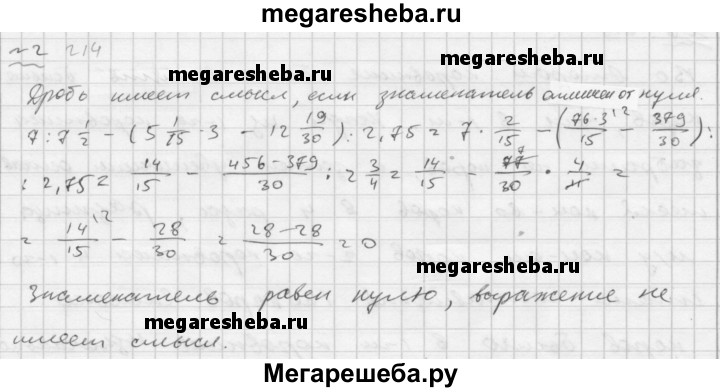 megaresheba.ru
№2 214
megaresheba.ru
Дробь имеет смысл, если знаменатель отличен от нуля.
7 : 7 1/2 − (5 1/15 · 3 − 12 19/30) : 2,75 = 7 · 2/15 − (76·3/15 \2 − 379/30) :
: 2,75 = 14/15 − (456−379)/30 : 2 3/4 = 14/15 − 77/30 7 · 4/11 =
= 14/15 \2 − 28/30 = (28−28)/30 = 0
Знаменатель равен нулю, выражение не
megaresheba.ru
имеет смысл.
Мегарешеба.ру